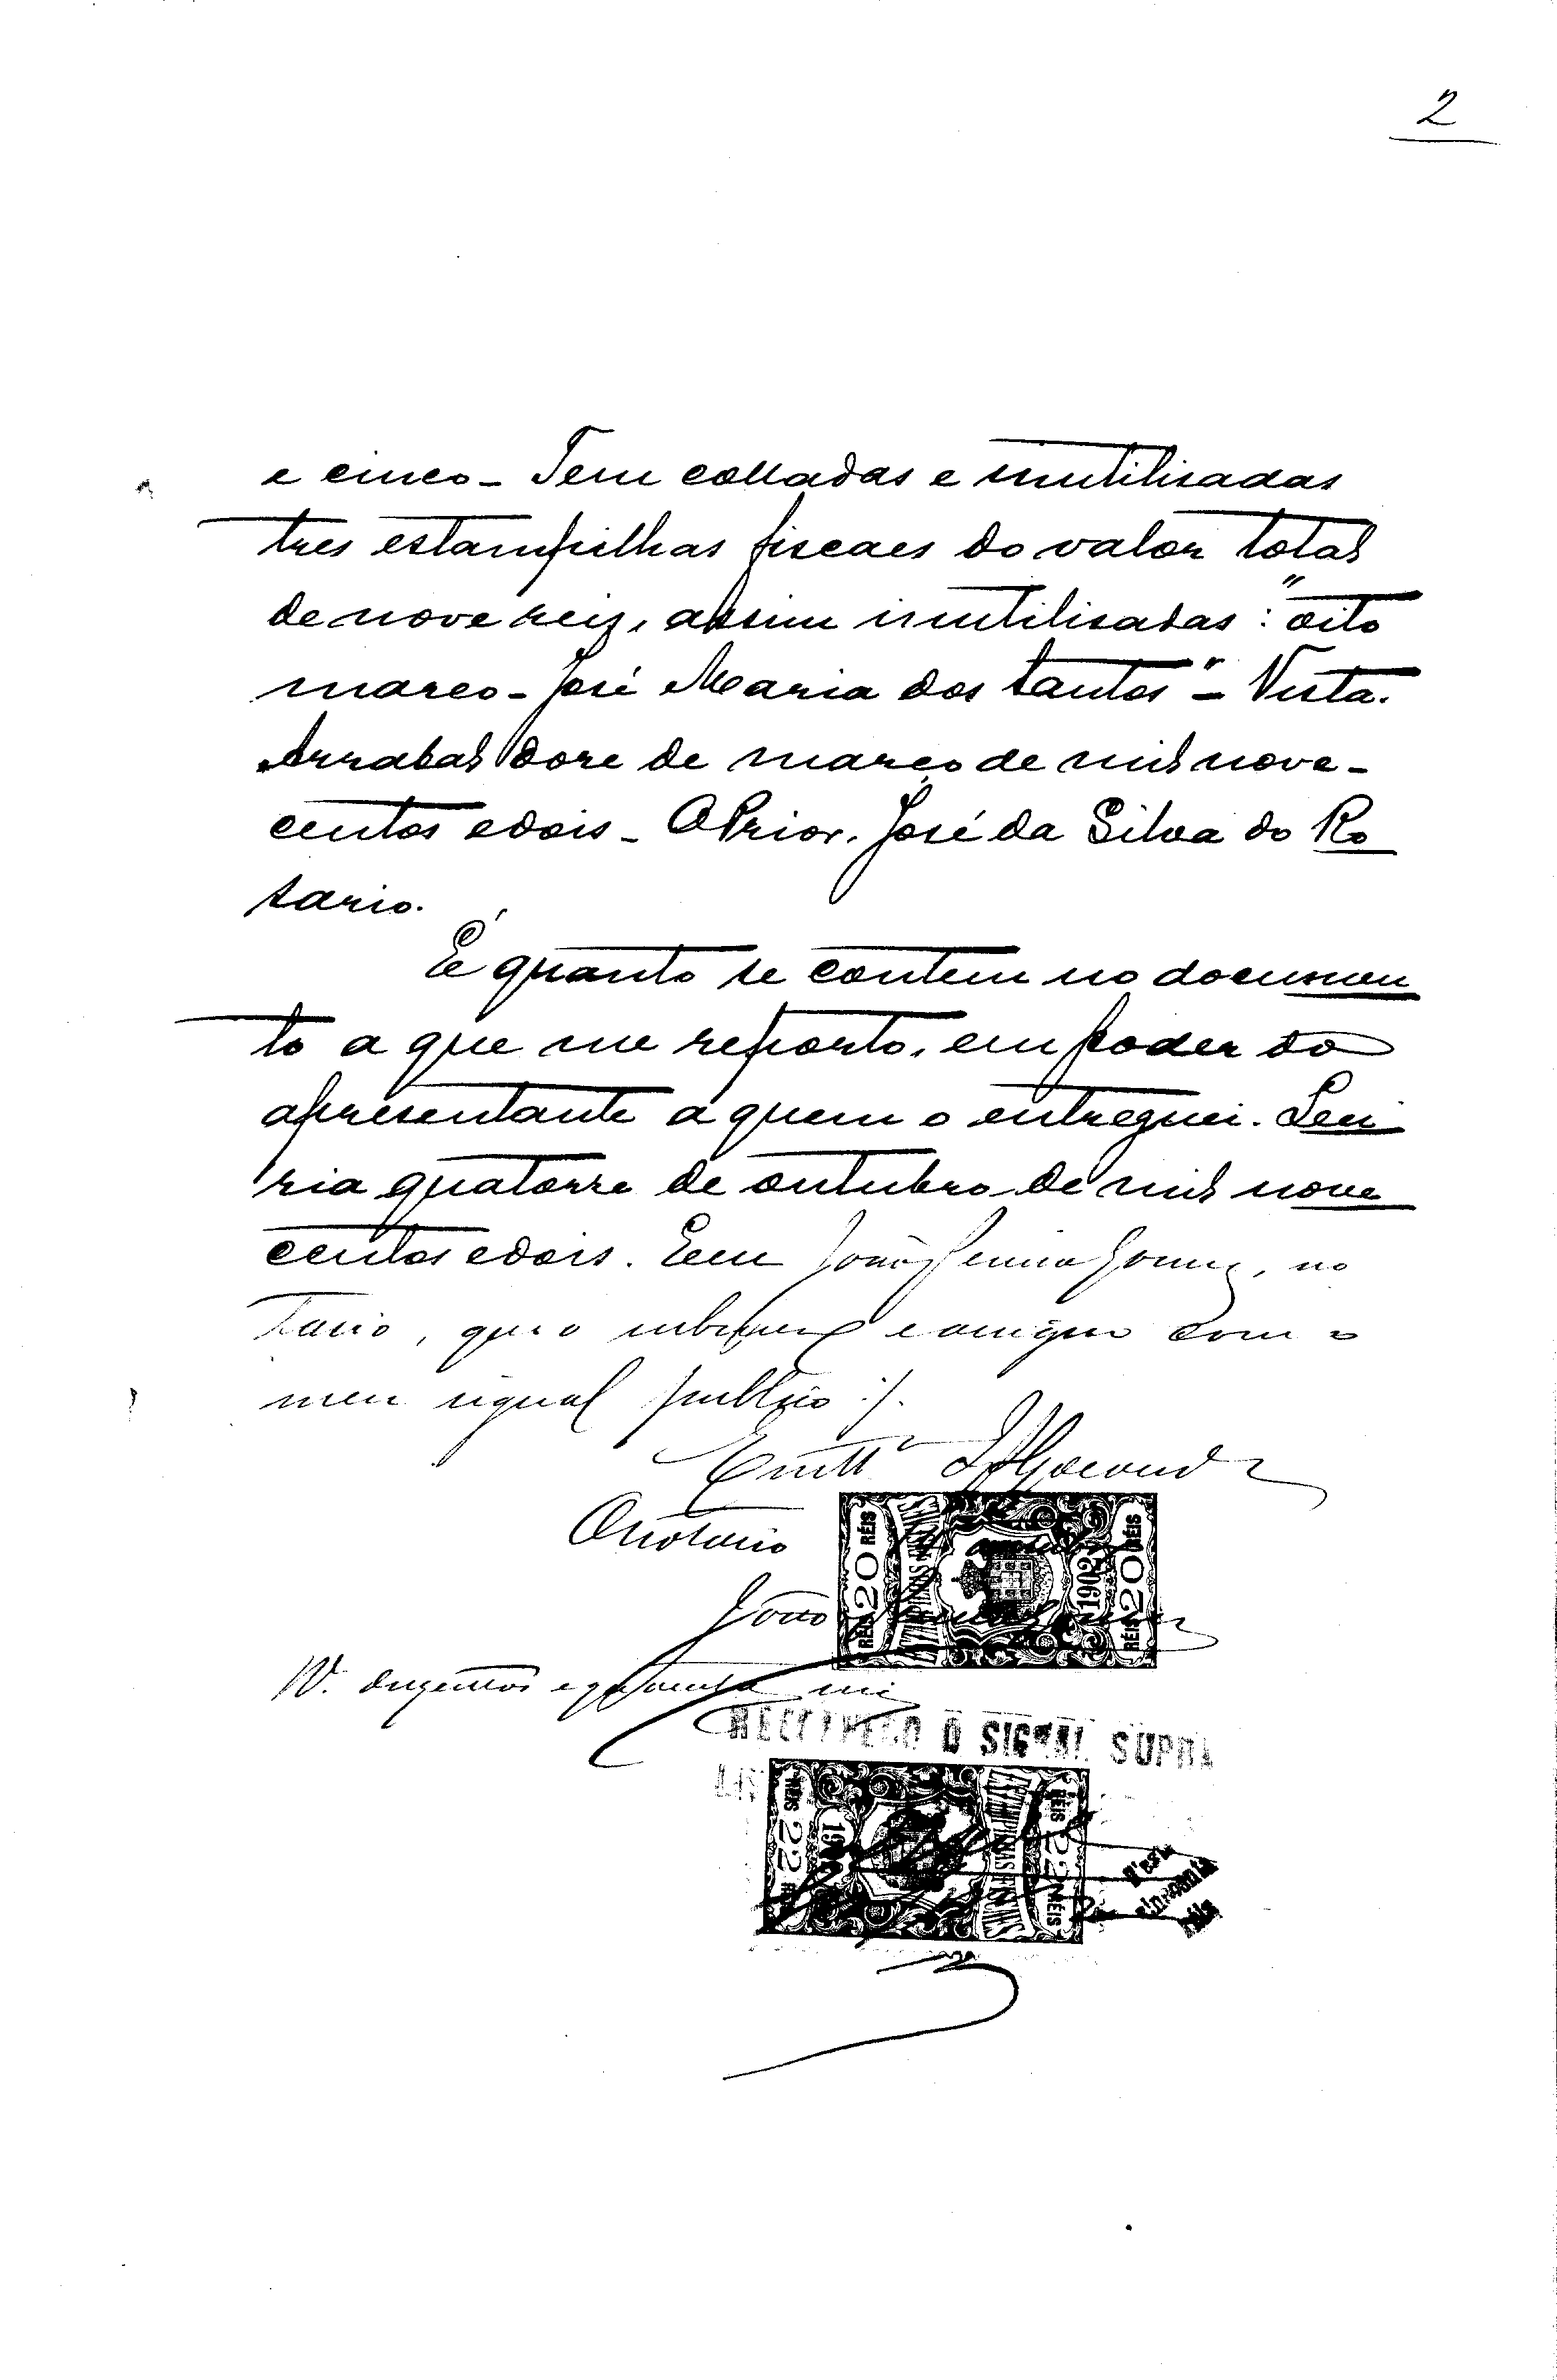 2
e cinco – Tem colladas e inutilisadas
tres estampilhas fiscaes do valor total
de nove reis, assim inutilisadas: "oito
março – José Maria dos Santos" – Visto.
Arrabal doze de março de mil nove-
centos e dois – O Prior. José da Silva do Ro
sario.
É quanto se contem no documen
to a que me reporto, em poder do
apresentante a quem o entreguei. Lei
ria quatorze de outubro de mil nove
centos e dois. Eu João Gomes, no
tario, que o subscrevo e assigno com o
meu signal publico
Em test.º de verdade
O notario
João
RÉIS 20 RÉIS 1902 RÉIS 20 RÉIS
N. duzentos e quarenta reis
RECONHEÇO O SIGNAL SUPRA
RÉIS 22 RÉIS 22 RÉIS